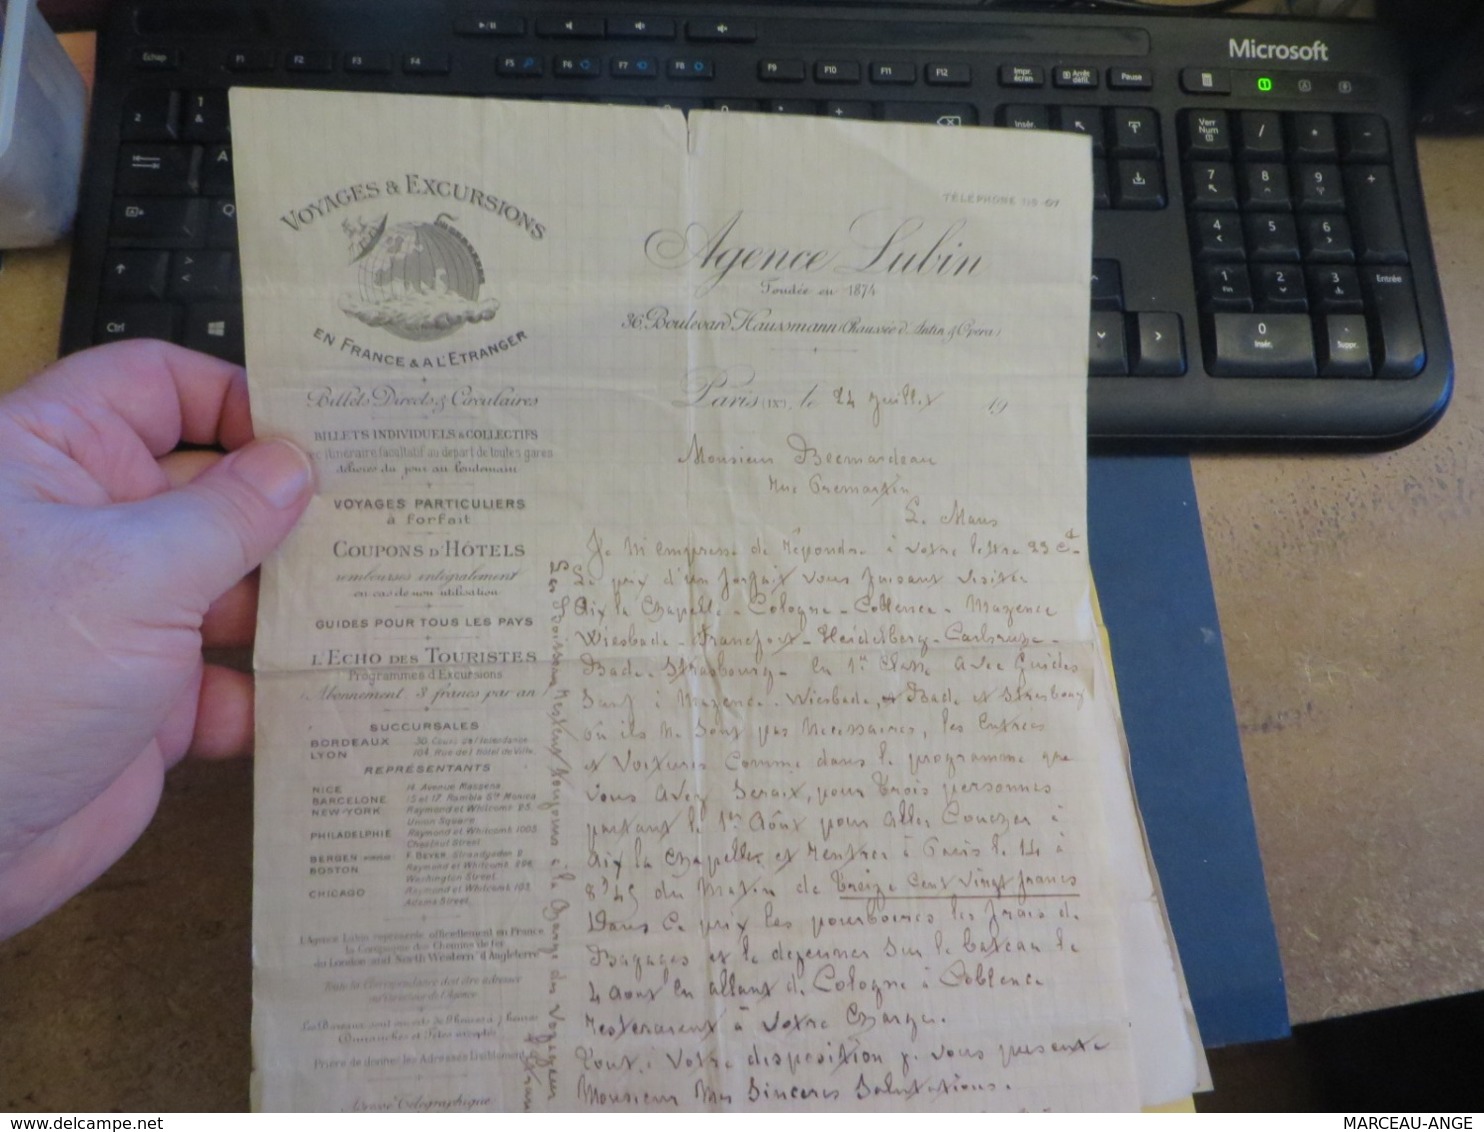 VOYAGES & EXCURSIONS
EN FRANCE & A L'ETRANGER
Billets Directs & Circulaires
BILLETS INDIVIDUELS & COLLECTIFS
itinéraire facultatif au départ de toutes gares
délivrés du jour au lendemain
VOYAGES PARTICULIERS
à forfait
COUPONS D'HÔTELS
remboursés intégralement
en cas de non utilisation
GUIDES POUR TOUS LES PAYS
L'ECHO DES TOURISTES
Programmes d'Excursions
Abonnement 3 francs par an
SUCCURSALES
BORDEAUX 30, Cours de l'Intendance
LYON 104, Rue de l'Hôtel de Ville
REPRÉSENTANTS
NICE 14 Avenue Masséna
BARCELONE 15 et 17 Rambla Sta Monica
NEW-YORK Raymond et Whitcomb 25
Union Square
PHILADELPHIE Raymond et Whitcomb 1005
Chestnut Street
BERGEN F. BEYER Strandgaden 2
BOSTON Raymond et Whitcomb 296
Washington Street
CHICAGO Raymond et Whitcomb 103
Adams Street
L'Agence Lubin représente officiellement en France
la Compagnie des Chemins de fer
du London and North Western d'Angleterre
Toute la Correspondance doit être adressée
au Directeur de l'Agence
Les Bureaux sont ouverts de 9 heures à 7 heures
Dimanches et Fêtes exceptés
Prière de donner les Adresses lisiblement
Adresse Télégraphique
TÉLÉPHONE
Agence Lubin
Fondée en 1874
36, Boulevard Haussmann (Chaussée d'Antin & Opéra)
Paris (IXe), le 24 Juillet 19
Monsieur Beernardeau
Rue Premartin
Le Mans
Je m'empresse de répondre à votre lettre 23 ct
Le prix d'un forfait vous faisant visiter
Aix la Chapelle - Cologne - Coblence - Mayence
Wiesbade - Francfort - Heidelberg - Carlsruhe -
Bade - Strasbourg - en 1re Classe avec Guides
Sauf à Mayence - Wiesbade, et Bade et Strasbourg
où ils ne sont pas necessaires, les Entrées
et Voitures comme dans le programme que
vous avez serait, pour trois personnes
partant le 1er Août pour aller coucher à
Aix la Chapelle et rentrer à Paris le 14 à
8h45 du matin de treize cent vingt francs
Dans ce prix les pourboires les frais de
Bagages et le dejeuner sur le bateau le
4 Aout en allant de Cologne à Coblence
resteraient à votre charge.
Tout à votre disposition je vous presente
Monsieur mes Sinceres Salutations.
Les Boissons restent toujours à la charge du Voyageur
Microsoft
Echap
F1
F2
F3
F4
F5
F6
F7
F8
F9
F10
F11
F12
Impr. écran
Arrêt défil.
Pause
Inser.
Verr Num
7
8
9
4
5
6
1
2
3
Entrée
0
Inser.
Suppr.
Ctrl
A
Q
MARCEAU-ANGE